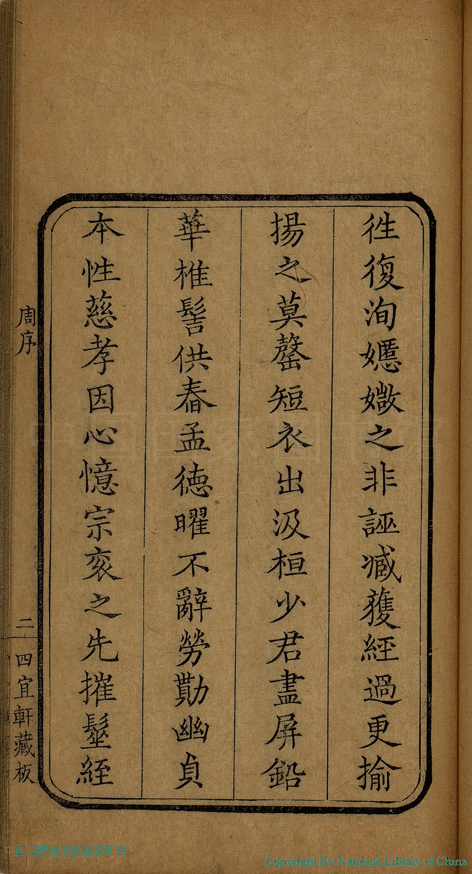 徃復洵嬺媺之非誣臧蒦經過更揄
揚之莫罄短衣出汲桓少君盡屏鉛
華椎髻供舂孟德曜不辭勞勩幽貞
本性慈孝因心憶宗袞之先摧髽絰
周序
二
四宜軒藏板
Copyright By National Library of China